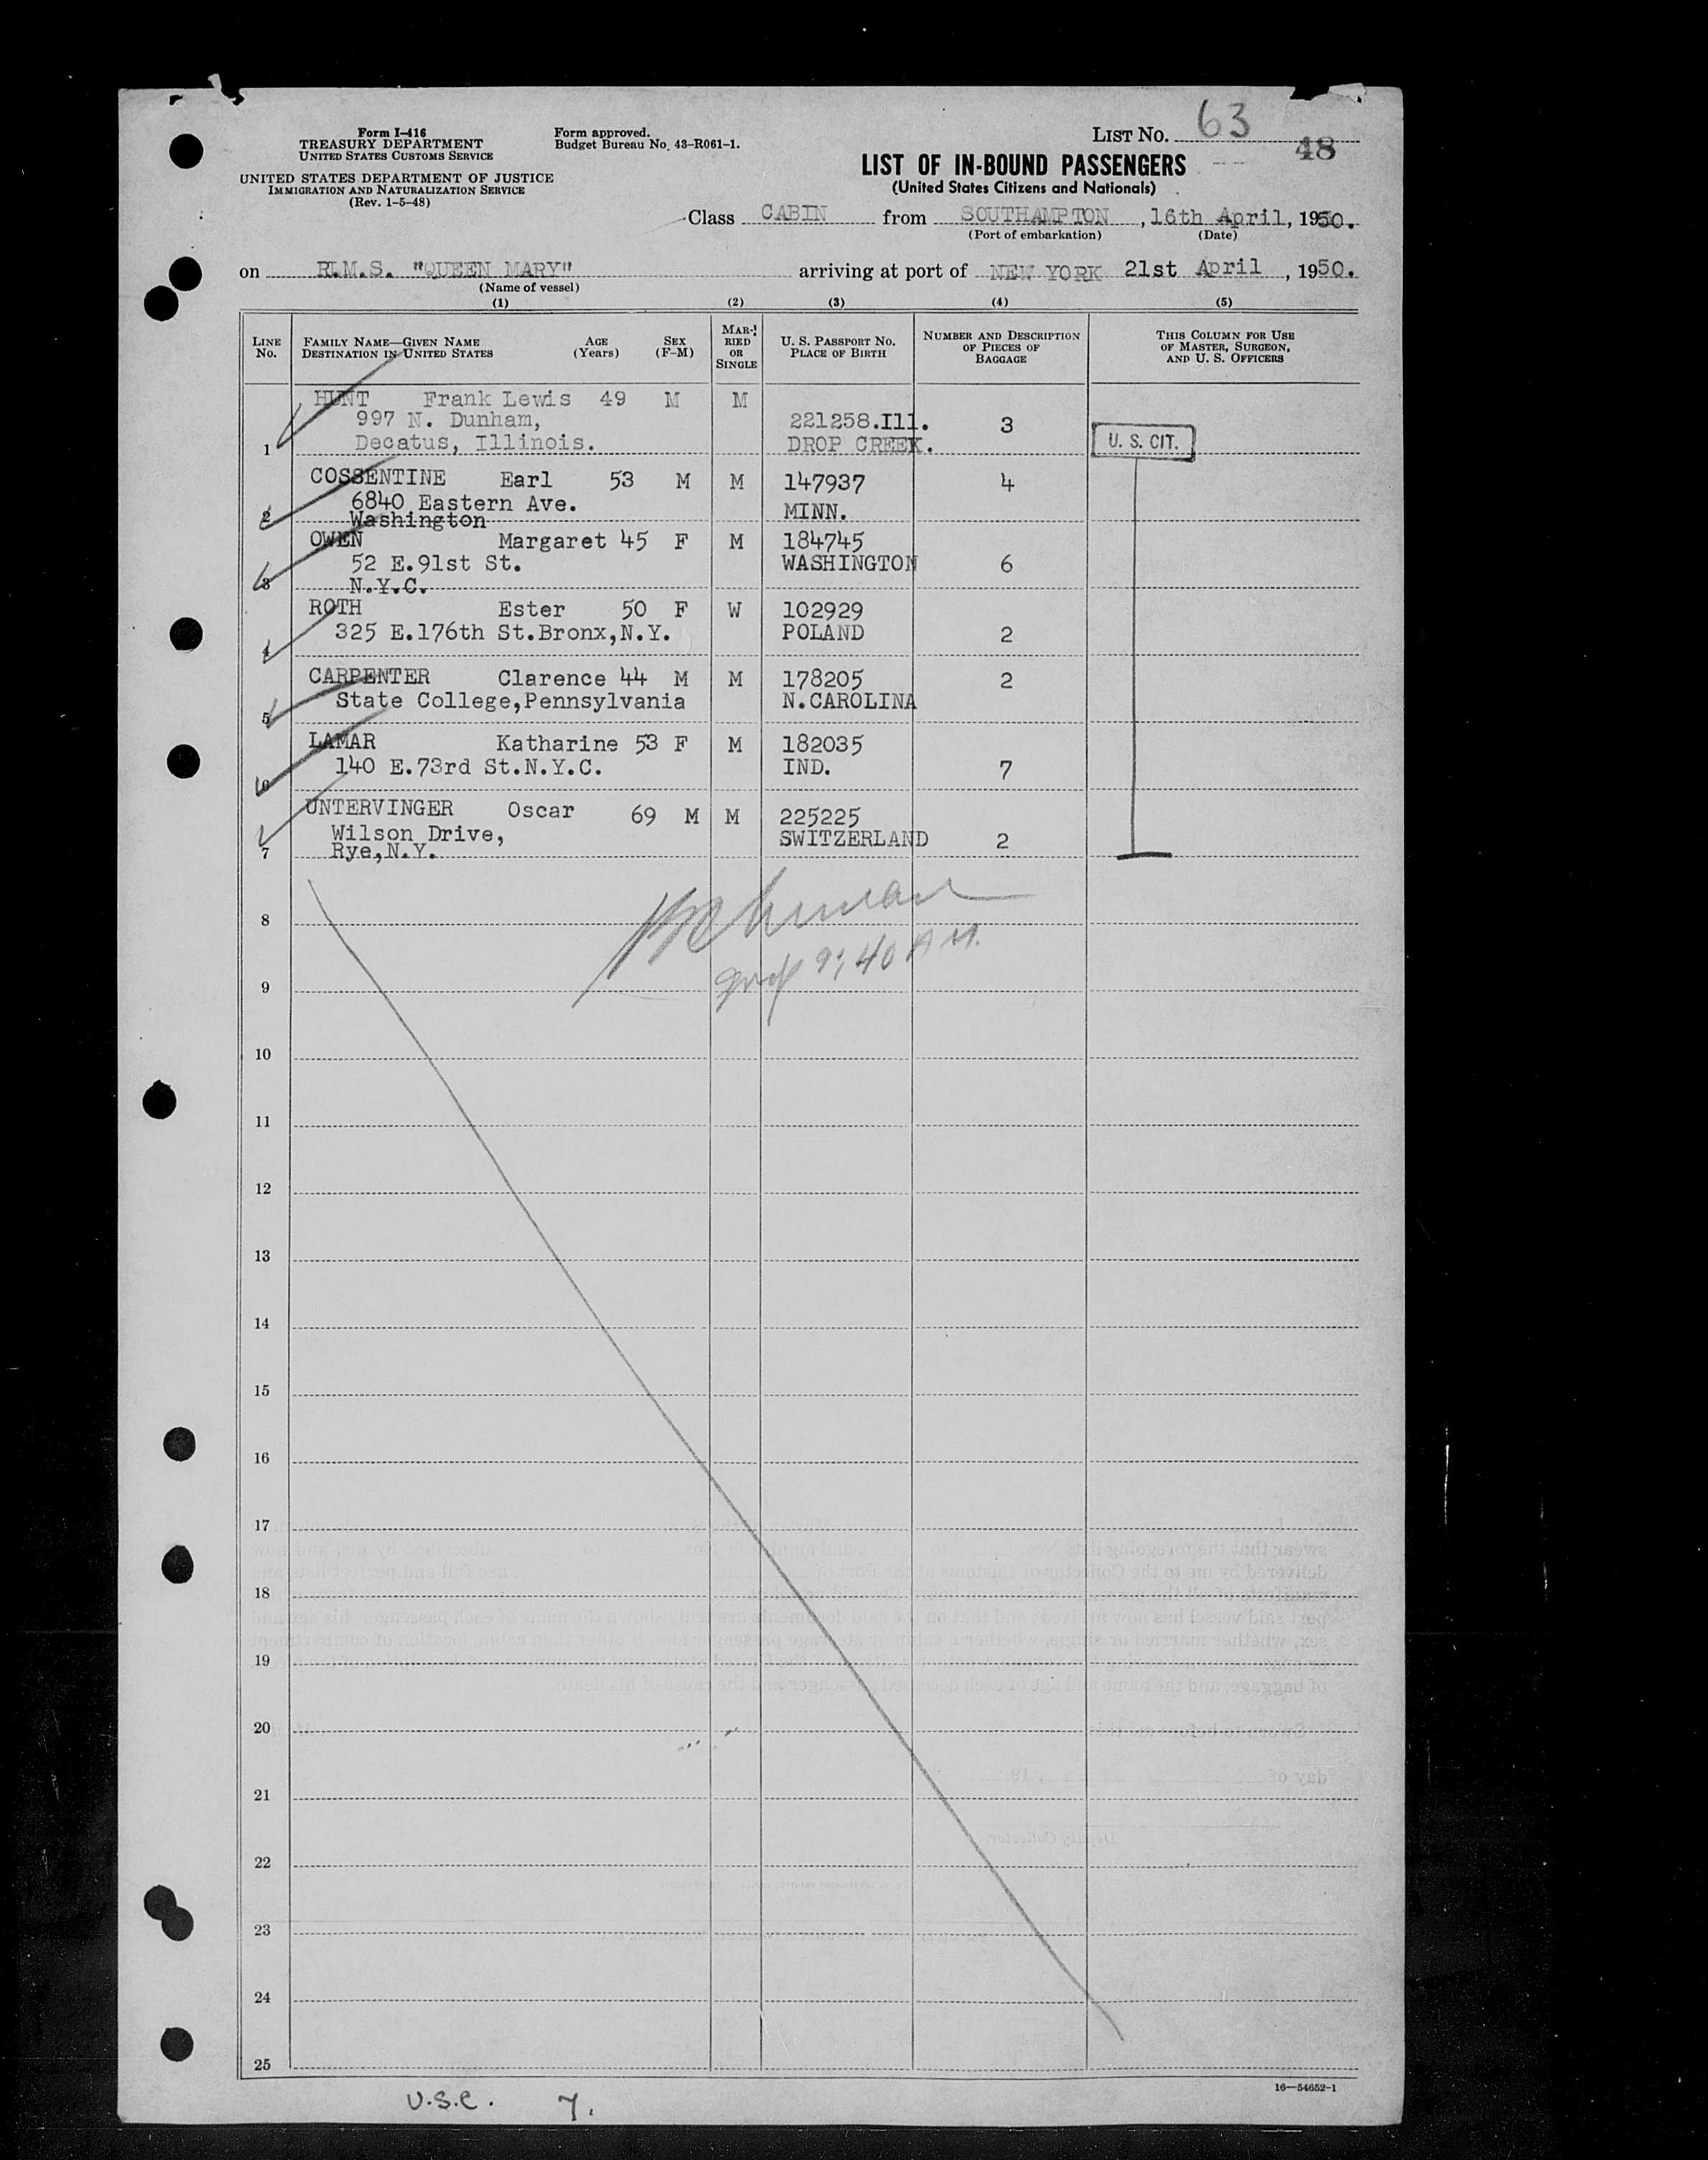 Form I-416
TREASURY DEPARTMENT
UNITED STATES CUSTOMS SERVICE
UNITED STATES DEPARTMENT OF JUSTICE
IMMIGRATION AND NATURALIZATION SERVICE
(Rev. 1-5-48)
Form approved.
Budget Bureau No. 43-R061-1.
LIST No. 63
48
LIST OF IN-BOUND PASSENGERS
(United States Citizens and Nationals)
Class CABIN from SOUTHAMPTON, 16th April, 1950.
(Port of embarkation) (Date)
on R.M.S. "QUEEN MARY" arriving at port of NEW YORK 21st April, 1950.
(Name of vessel)
(1) (2) (3) (4) (5)
LINE No. FAMILY NAME—GIVEN NAME DESTINATION IN UNITED STATES AGE (Years) SEX (F-M) MARRIED OR SINGLE U. S. PASSPORT No. PLACE OF BIRTH NUMBER AND DESCRIPTION OF PIECES OF BAGGAGE THIS COLUMN FOR USE OF MASTER, SURGEON, AND U. S. OFFICERS
HUNT Frank Lewis 49 M M
997 N. Dunham, 221258.Ill. 3
1 Decatus, Illinois. DROP CREEK. U. S. CIT.
COSSENTINE Earl 53 M M 147937 4
6840 Eastern Ave. MINN.
2 Washington
OWEN Margaret 45 F M 184745
52 E.91st St. WASHINGTON 6
3 N.Y.C.
ROTH Ester 50 F W 102929
325 E.176th St.Bronx,N.Y. POLAND 2
4
CARPENTER Clarence 44 M M 178205 2
State College,Pennsylvania N.CAROLINA
5
LAMAR Katharine 53 F M 182035
140 E.73rd St.N.Y.C. IND. 7
6
UNTERVINGER Oscar 69 M M 225225
Wilson Drive, SWITZERLAND 2
7 Rye,N.Y.
8
9:40 AM.
9
10
11
12
13
14
15
16
17
18
19
20
21
22
23
24
25
16—54652-1
U.S.C. 7.